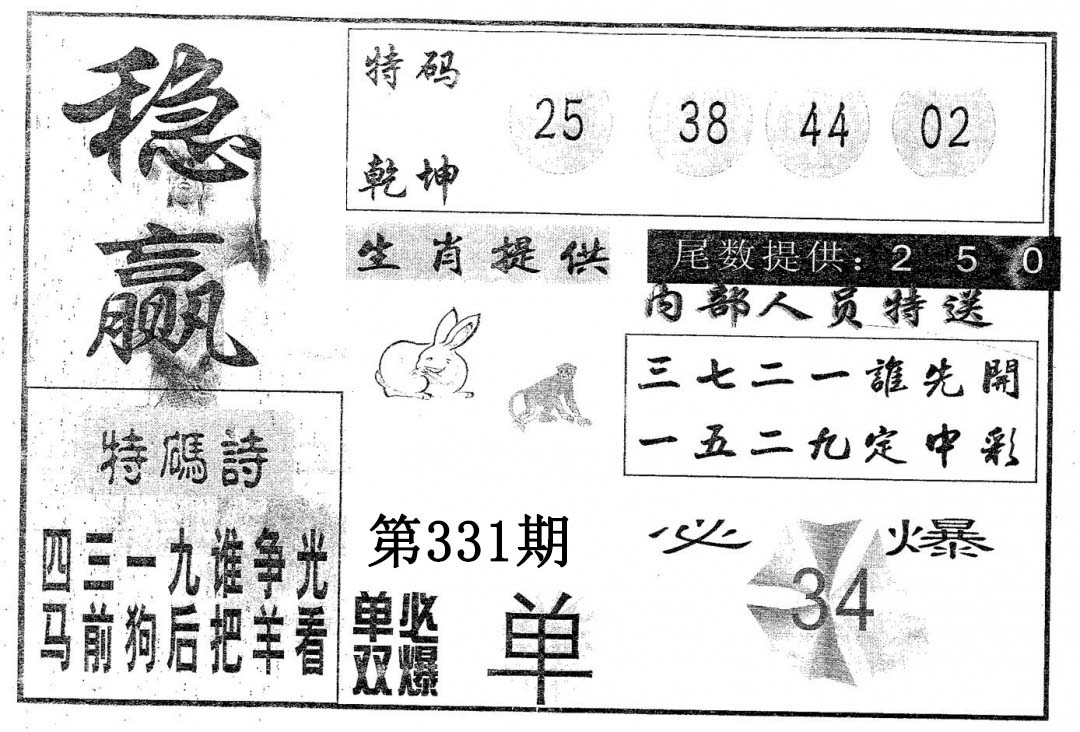 稳
赢
特码
乾坤
25 38 44 02
生肖提供
尾数提供：2 5 0
内部人员特送
三七二一誰先開
一五二九定中彩
特碼詩
四三一九谁争光
马前狗后把羊看
第331期
单双
必爆
单
必爆
34